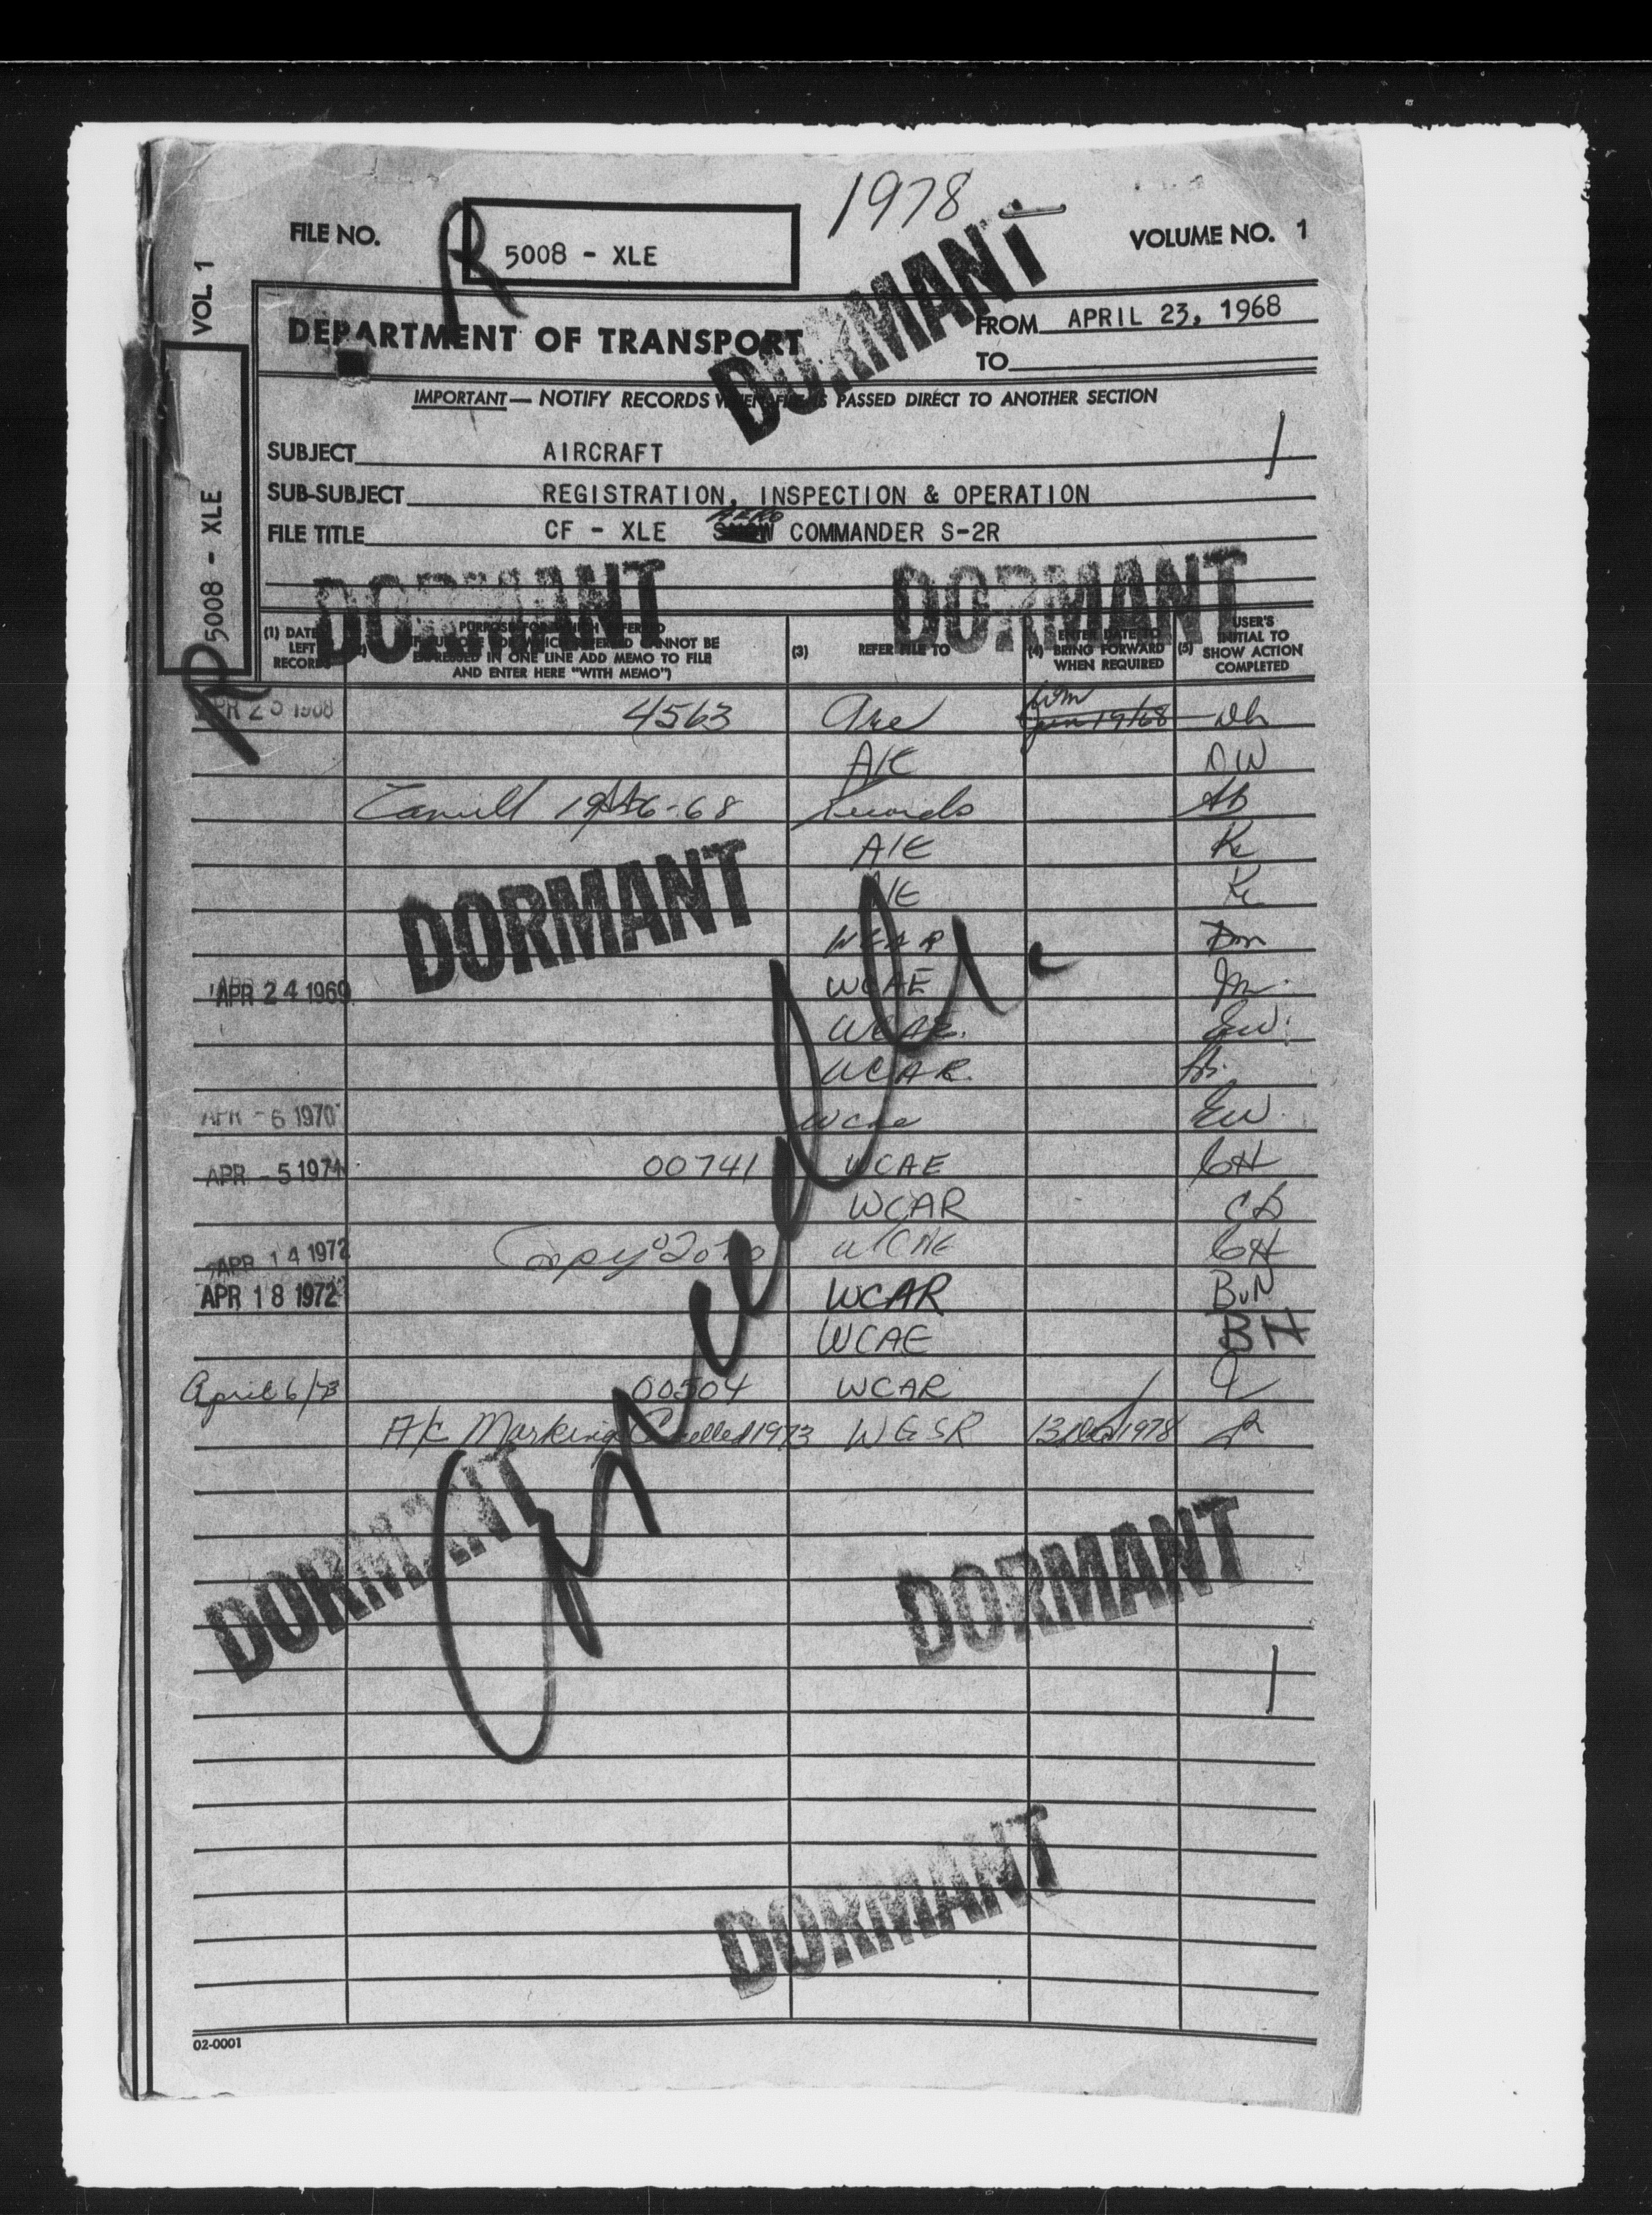 1978
FILE NO. R 5008 - XLE VOLUME NO. 1
VOL. 1
R 5008 - XLE
DORMANT
DEPARTMENT OF TRANSPORT
FROM APRIL 23, 1968
TO
IMPORTANT — NOTIFY RECORDS WHEN FILE IS PASSED DIRECT TO ANOTHER SECTION
SUBJECT AIRCRAFT
SUB-SUBJECT REGISTRATION, INSPECTION & OPERATION
AERO
FILE TITLE CF - XLE SNOW COMMANDER S-2R
DORMANT DORMANT
(1) DATE LEFT RECORDS
(2) PURPOSE FOR WHICH REFERRED
(IF PURPOSE FOR WHICH REFERRED CANNOT BE
EXPRESSED IN ONE LINE ADD MEMO TO FILE
AND ENTER HERE "WITH MEMO")
(3) REFER FILE TO
(4) ENTER DATE TO BRING FORWARD WHEN REQUIRED
(5) USER'S INITIAL TO SHOW ACTION COMPLETED
APR 25 1968 4563
A/E DW
Records
A/E K
A/E K
DORMANT
WCAR
APR 24 1969 WCAE
WCAR. EW.
WCAR.
APR - 6 1970 WCAE EW.
APR - 5 1971 00741 WCAE GH
WCAR
APR 14 1972 Copy WCAE GH
APR 18 1972 WCAR BN
WCAE BN
April 6/73 00504 WCAR
A/C Marking Cancelled 1973 WGSR 13 Dec 1978
Cancelled
DORMANT
DORMANT
DORMANT
02-0001